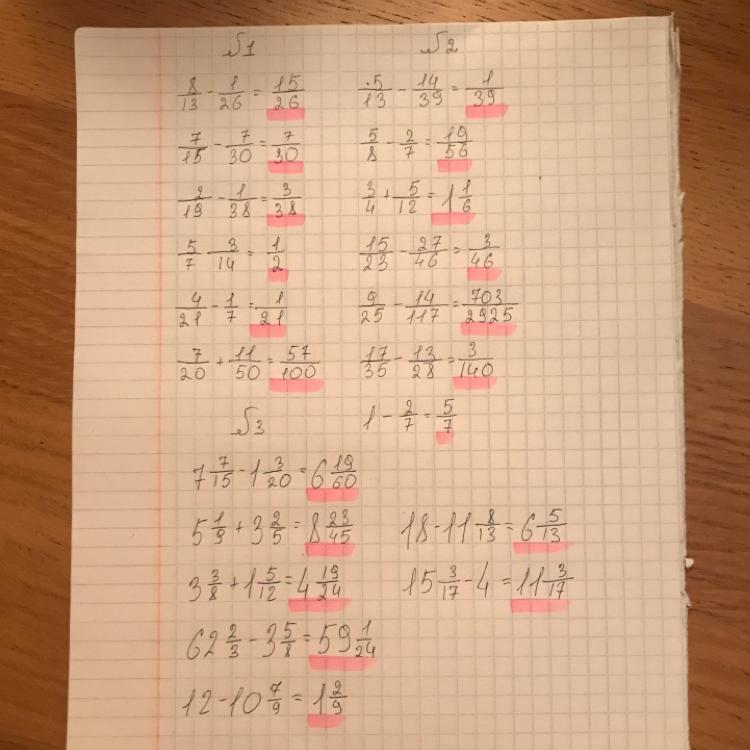 №1
8/13 - 1/26 = 15/26
7/15 - 7/30 = 7/30
2/19 - 1/38 = 3/38
5/7 - 3/14 = 1/2
4/21 - 1/7 = 1/21
7/20 + 11/50 = 57/100
№2
5/13 - 14/39 = 1/39
5/8 - 2/7 = 19/56
3/4 + 5/12 = 1 1/6
15/23 - 27/46 = 3/46
9/25 - 14/117 = 703/2925
17/35 - 13/28 = 3/140
1 - 2/7 = 5/7
№3
7 7/15 - 1 3/20 = 6 19/60
5 1/9 + 3 2/5 = 8 23/45
3 3/8 + 1 5/12 = 4 19/24
62 2/3 - 3 5/8 = 59 1/24
12 - 10 7/9 = 1 2/9
18 - 11 8/13 = 6 5/13
15 3/17 - 4 = 11 3/17